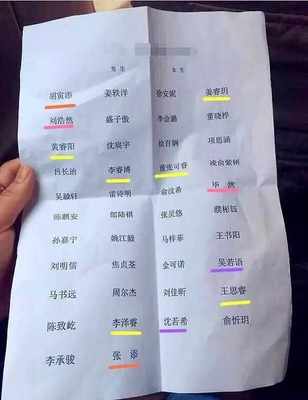 男生 女生
胡寅添 姜轶洋 徐安妮 姜睿玥
刘浩然 盛子傲 李俞潞 董晓桦
黄睿阳 沈宸宇 徐百娴 项思涵
吕长治 李睿博 张可睿 凌俞紫树
吴毓轩 雷诗明 俞沈希 毕然
陈鹏安 邬陆祺 张昃悠 濮彬钰
孙嘉宁 姚江巍 马梓菲 王书阳
刘明儒 焦贞荃 金可诺 吴若语
马书远 周尔杰 刘佳昕 王思睿
陈致屹 李泽睿 沈若希 俞忻玥
李承骏 张添